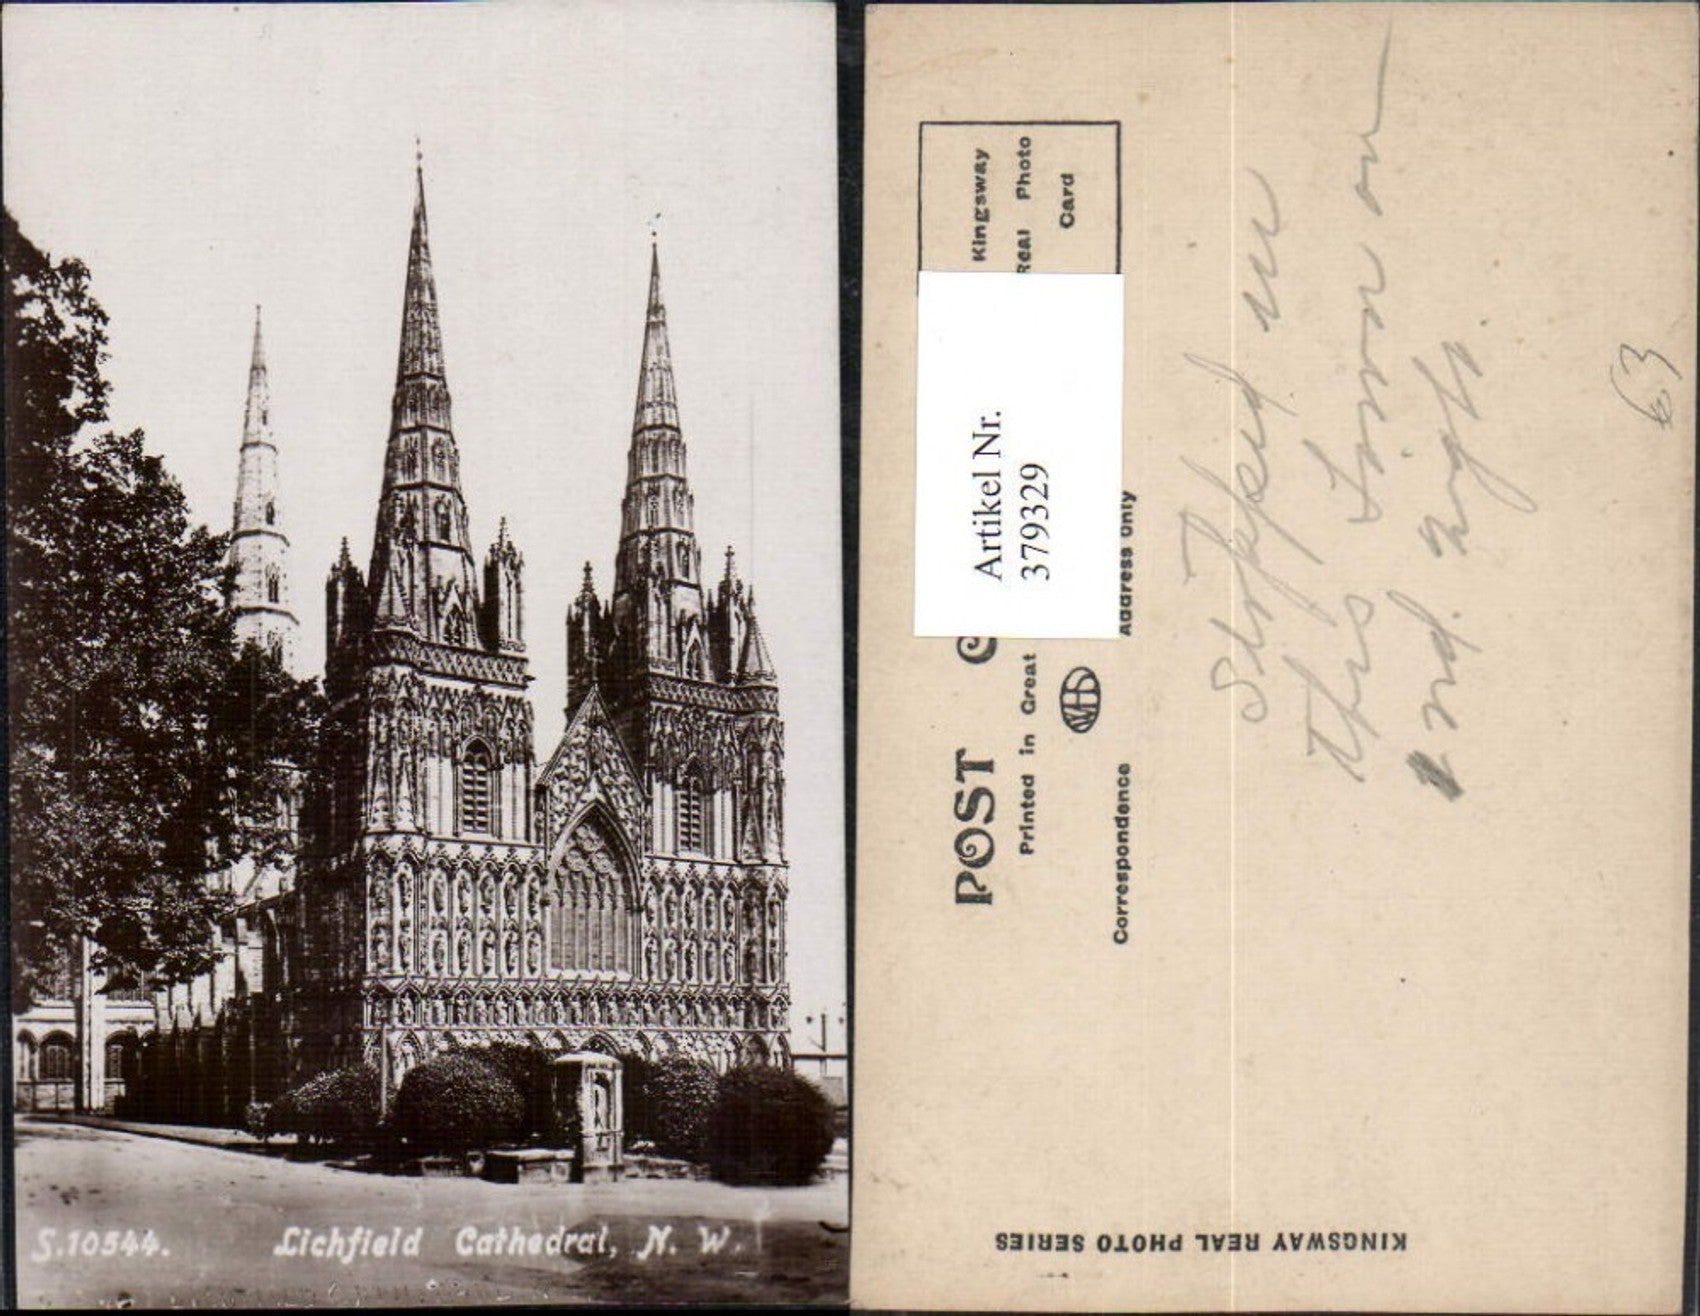 S.10544. Lichfield Cathedral, N. W.
Kingsway
Real Photo
Card
Artikel Nr.
379329
POST C
Printed in Great
WHS
Correspondence
Address Only
Stopped in
this town on
2nd. night.
63
KINGSWAY REAL PHOTO SERIES